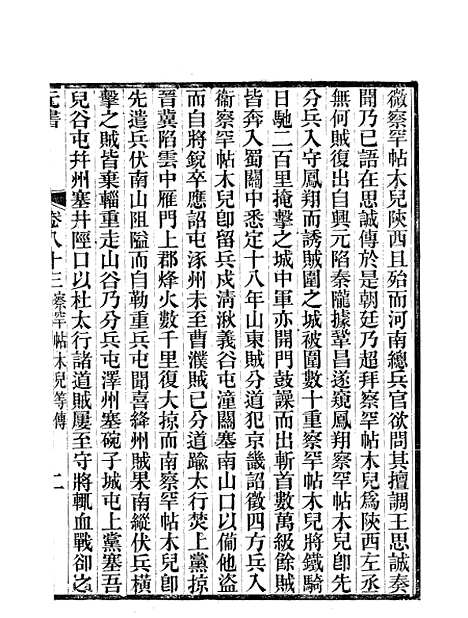 微察罕帖木兒陝西且殆而河南總兵官欲問其擅調王思誠奏
聞乃已語在思誠傳於是朝廷乃超拜察罕帖木兒爲陝西左丞
無何賊復出自興元陷秦隴據鞏昌遂窺鳳翔察罕帖木兒卽先
分兵入守鳳翔而誘賊圍之城被圍數十重察罕帖木兒將鐵騎
日馳二百里掩擊之城中軍亦開門鼓譟而出斬首數萬級餘賊
皆奔入蜀關中悉定十八年山東賊分道犯京畿詔徵四方兵入
衞察罕帖木兒卽留兵戍淸湫義谷屯潼關塞南山口以備他盜
而自將銳卒應詔屯涿州未至曹濮賊已分道踰太行焚上黨掠
晉冀陷雲中雁門上郡烽火數千里復大掠而南察罕帖木兒卽
先遣兵伏南山阻隘而自勒重兵屯聞喜絳州賊果南縱伏兵橫
擊之賊皆棄輜重走山谷乃分兵屯澤州塞碗子城屯上黨塞吾
兒谷屯幷州塞井陘口以杜太行諸道賊屢至守將輒血戰卻之
元書
卷八十三 察罕帖木兒等傳
二